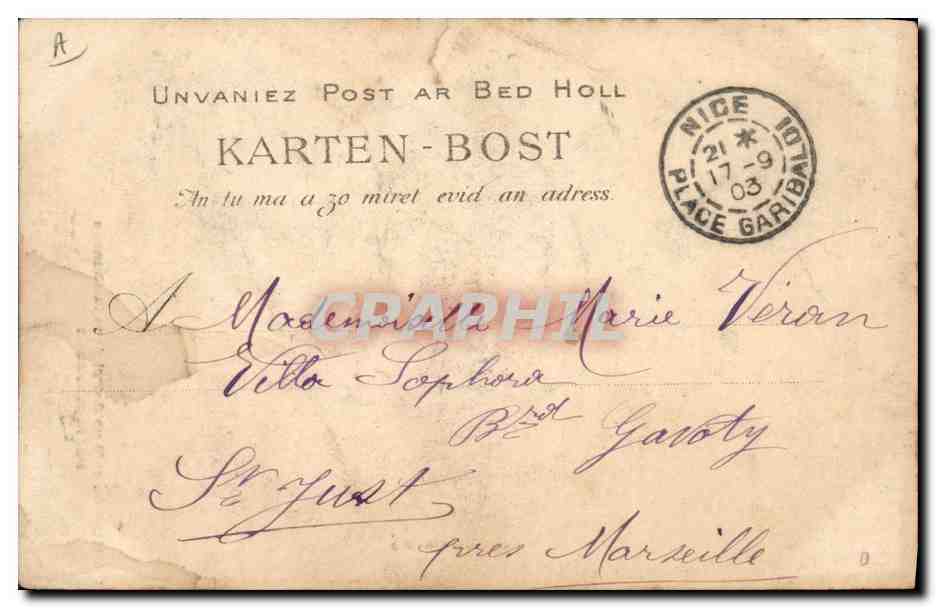 A
UNVANIEZ POST AR BED HOLL
KARTEN-BOST
An tu ma a zo miret evid an adress.
NICE
21 *
17 -9
03
PLACE GARIBALDI
CPARPHIL
A Mademoiselle Marie Véran
Villa Sophora
Bd Gavoty
St Just
près Marseille
0